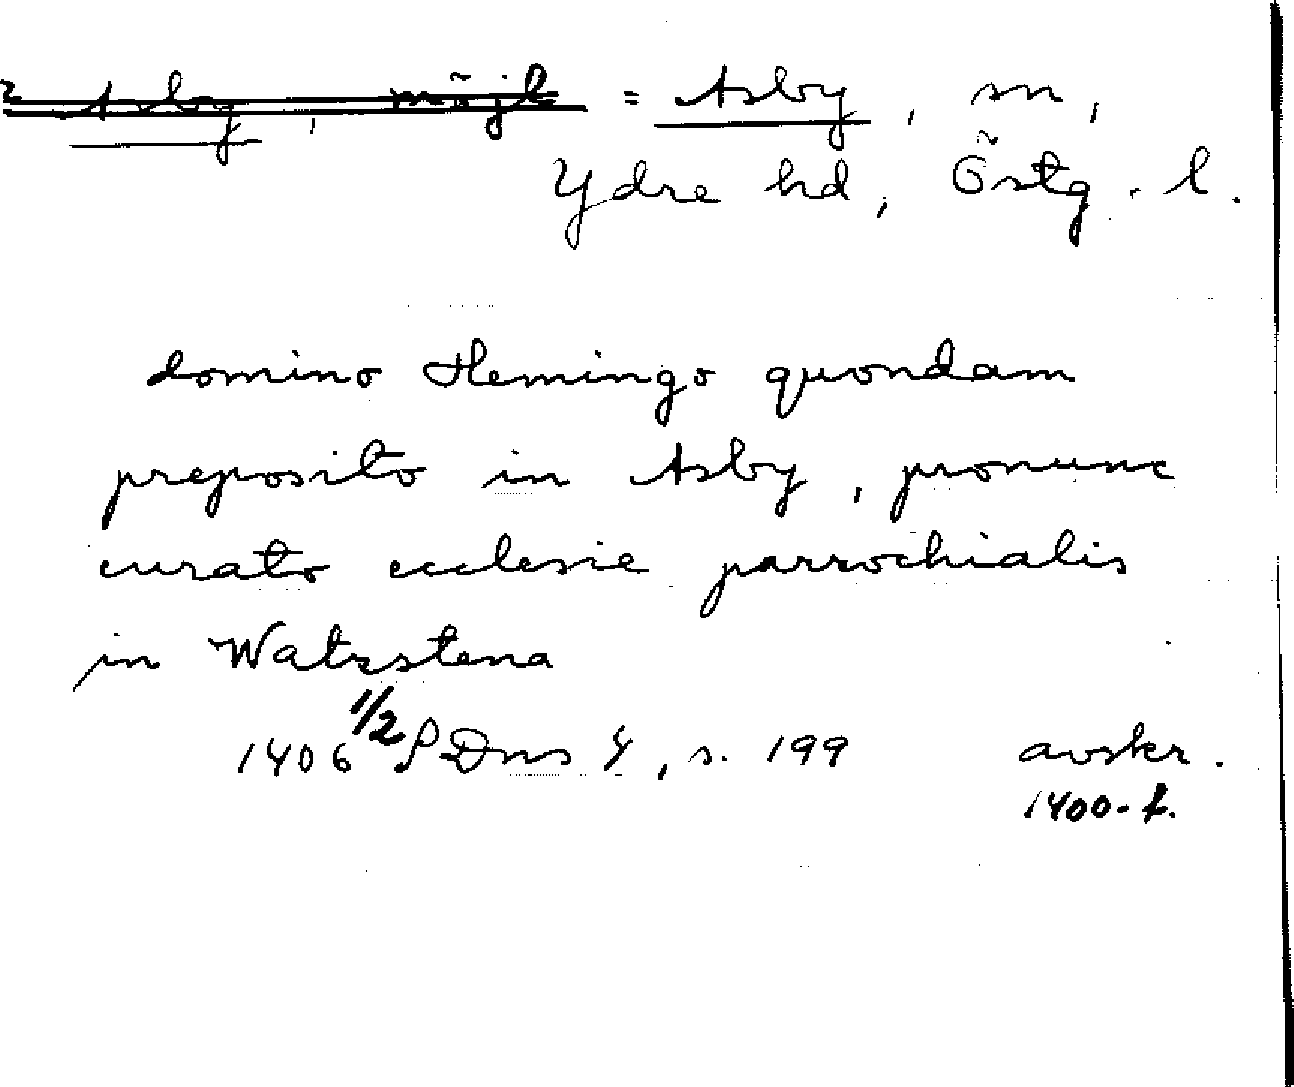 Asby, möjl = Asby, sn,
Ydre hd, Östg. l.
domino Hemingo quondam
preposito in Asby, pronunc
curato ecclesie parrochialis
in Watzstena
1406 1/2 SDns 1, s. 199 avskr.
1400-t.